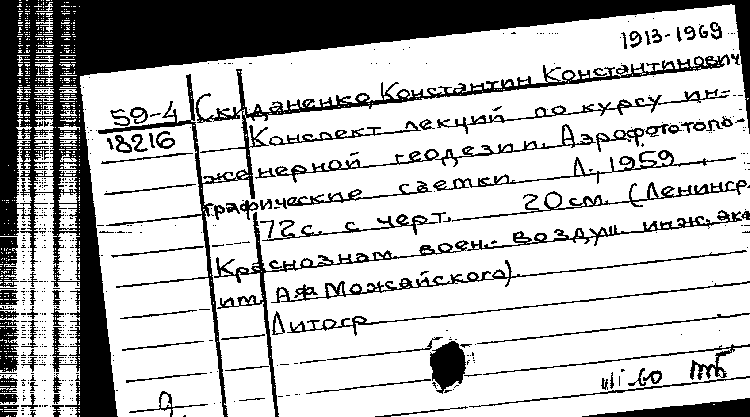 1913-1969
59-4 Скиданенко, Константин Константинович
18216 Конспект лекций по курсу ин-
женерной геодезии. Аэрофототопо-
графические съемки. Л., 1959.
72с. с черт. 20см. (Ленингр.
Краснознам. воен.-воздуш. инж. ака
им. А.Ф. Можайского).
Литогр.